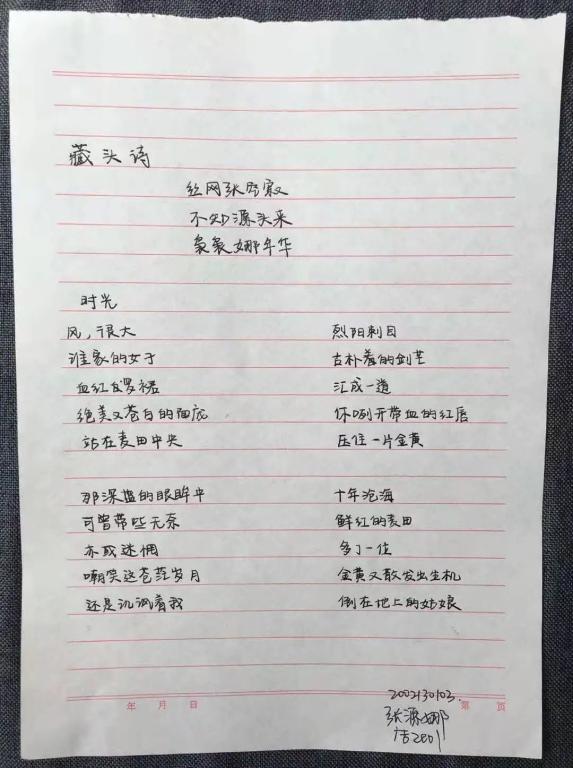 藏头诗
丝网张唇寂
不知源头来
袅袅娜年华
时光
风，很大
谁家的女子
血红绫罗裙
绝美又苍白的面庞
站在麦田中央
那深蓝的眼眸中
可曾带些无奈
亦或迷惘
嘲笑这苍茫岁月
还是讥讽着我
烈阳刺目
古朴羞的剑芒
汇成一道
你咧开带血的红唇
压住一片金黄
十年沧海
鲜红的麦田
多了一位
金黄又散发出生机
倒在地上的姑娘
2002130103.
张源娜
年 月 日
第 页